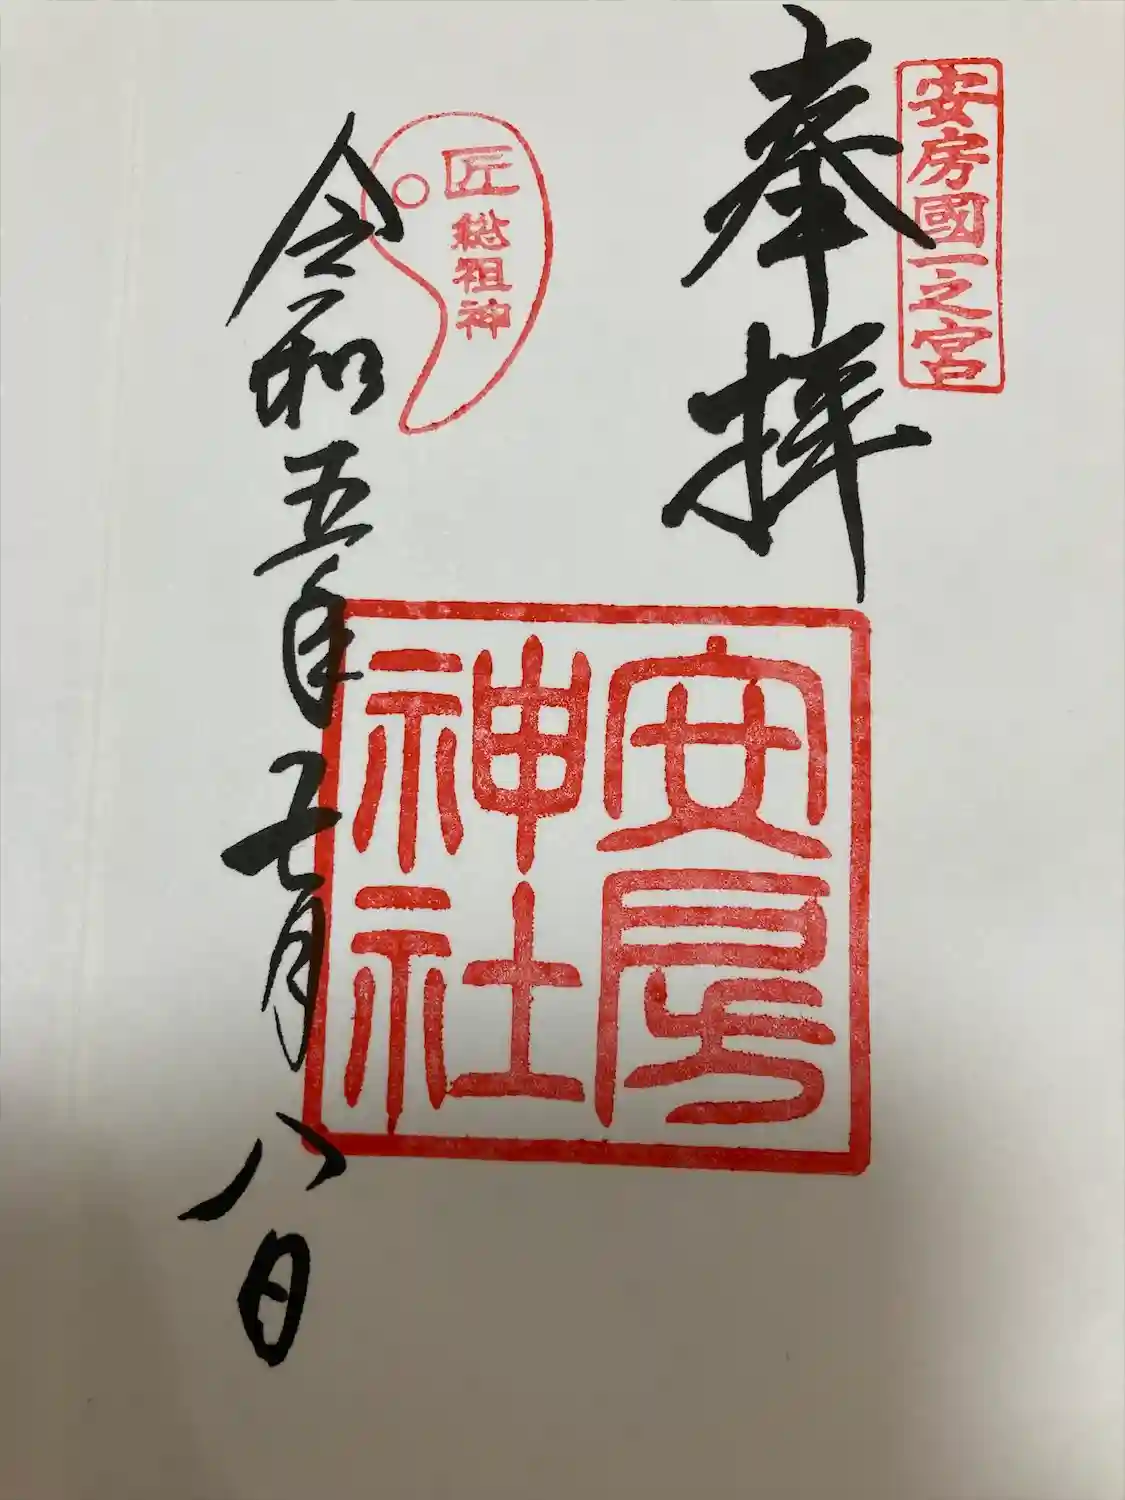 安房國一之宮
奉拝
安房
神社
匠総祖神
令和五年七月八日